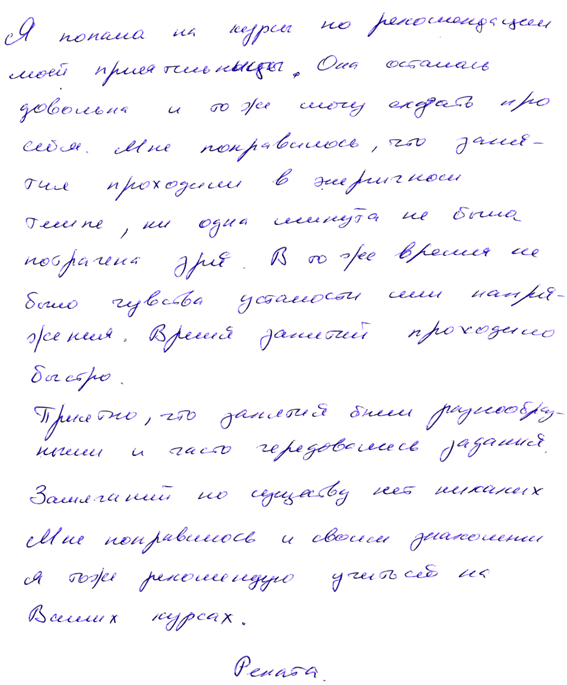 Я попала на курсы по рекомендации
моей приятельницы. Она осталась
довольна и то же могу сказать про
себя. Мне понравилось, что заня-
тия проходили в энергичном
темпе, ни одна минута не была
потрачена зря. В то же время не
было чувства усталости или напря-
жения. Время занятий проходило
быстро.
Приятно, что занятия были разнообраз-
ными и часто чередовались задания.
Замечаний по существу нет никаких
Мне понравилось и своим знакомым
я тоже рекомендую учиться на
Ваших курсах.
Рената.